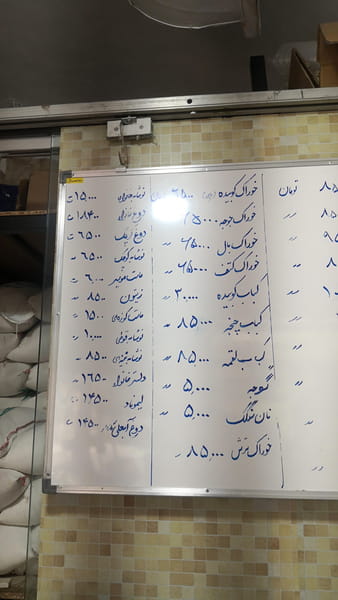 ۸۵ تومان
۸۵ ״
۹۵ ״
۸ ״
۱۰ ״
خوراک کوبیده ۶۵۰۰۰
خوراک جوجه ۷۵۰۰۰
خوراک بال ۶۵۰۰۰ ״
خوراک کتف ۶۵۰۰۰ ״
کباب کوبیده ۳۰,۰۰۰ ״
کباب چنجه ۸۵۰۰۰ ״
کباب لقمه ۸۵,۰۰۰ ״
گوجه ۵,۰۰۰ ״
نان سنگک ۵,۰۰۰ ״
خوراک ترش ۸۵۰۰۰ ״
نوشابه خانواده ۱۵,۰۰۰ ت
دوغ خانواده ۱۸۴۰۰ ت
دوغ ۶۵۰۰ ت
نوشابه کوچک ۶۵۰۰ ״
ماست موسیر ۶۰۰۰ ״
زیتون ۸۵۰۰ ״
ماست ۱۵۰۰۰
نوشابه قوطی ۱۰,۰۰۰ ״
نوشابه ۸۵۰۰ ״
دلستر خانواده ۱۶۵۰۰ ״
لیموناد ۱۴۵۰۰
دوغ آبعلی ۱۴۵۰۰ ت